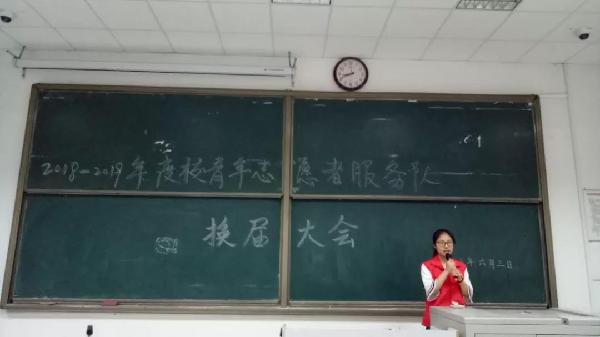 2018-2019年度校青年志愿者服务队
换届大会
年六月三日